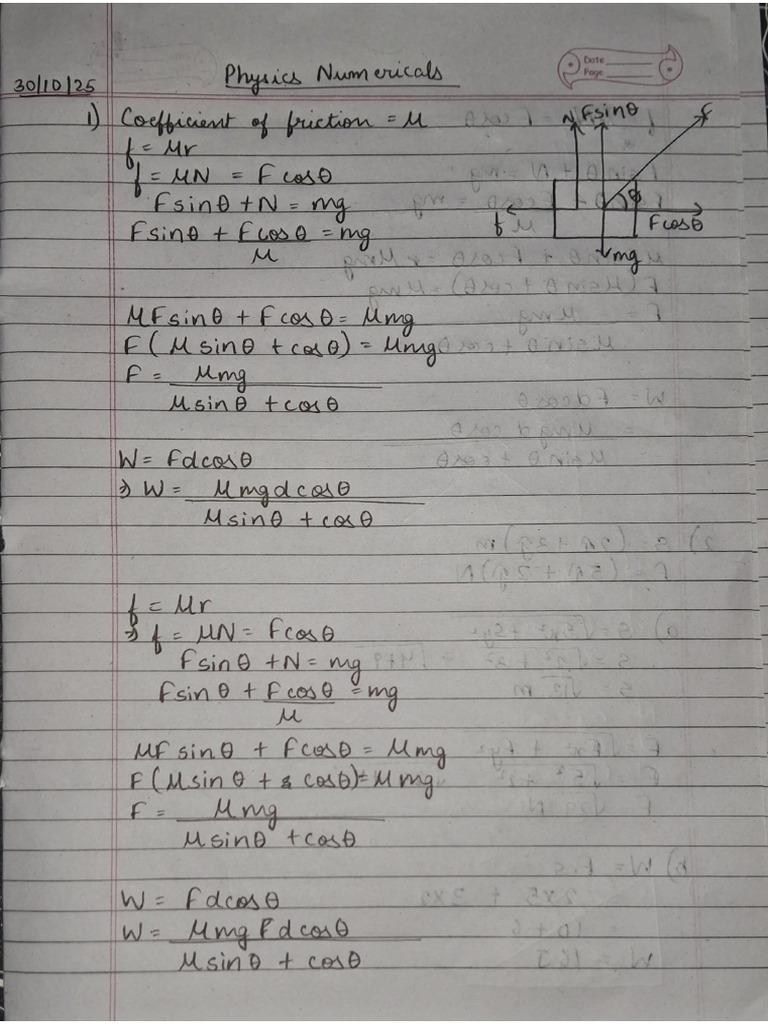 Date
Page
Physics Numericals
30/10/25
1) Coefficient of friction = μ
f = μr
f = μN = Fcosθ
Fsinθ + N = mg
Fsinθ + Fcosθ = mg
μ
N
Fsinθ
F
θ
f
Fcosθ
mg
μFsinθ + Fcosθ = μmg
F(μsinθ + cosθ) = μmg
F = μmg
μsinθ + cosθ
W = Fdcosθ
⇒ W = μmgdcosθ
μsinθ + cosθ
f = μr
⇒ f = μN = Fcosθ
Fsinθ + N = mg
Fsinθ + Fcosθ = mg
μ
μFsinθ + Fcosθ = μmg
F(μsinθ + cosθ) = μmg
F = μmg
μsinθ + cosθ
W = Fdcosθ
W = μmg F d cosθ
μsinθ + cosθ